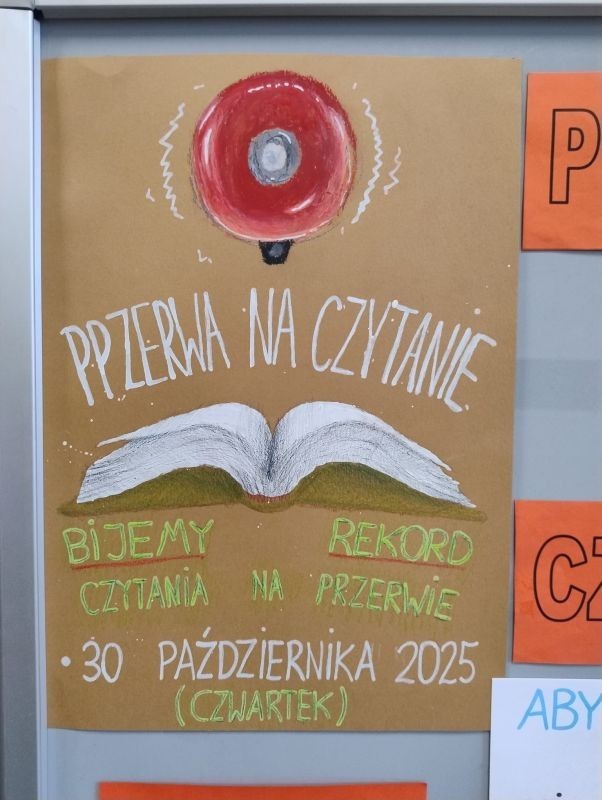 PPZERWA NA CZYTANIE
BIJEMY REKORD
CZYTANIA NA PRZERWIE
• 30 PAŹDZIERNIKA 2025
(CZWARTEK)
P
CZ
ABY